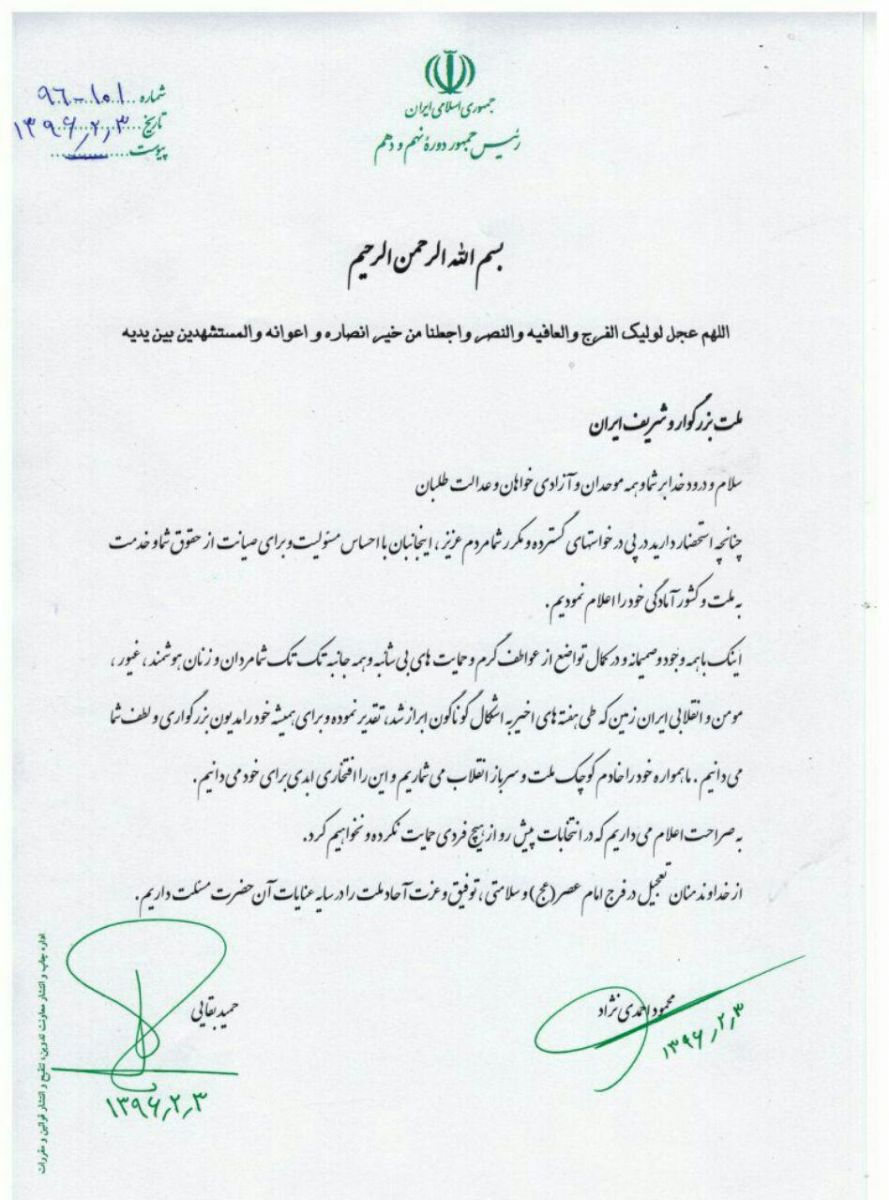 جمهوری اسلامی ایران
رئیس جمهور دورهٔ نهم و دهم
شماره ۹۶-۱۰۱
تاریخ ۱۳۹۶٫۲٫۳
پیوست
بسم الله الرحمن الرحیم
اللهم عجل لولیک الفرج والعافیه والنصر واجعلنا من خیر انصاره و اعوانه والمستشهدین بین یدیه
ملت بزرگوار و شریف ایران
سلام و درود خدا بر شما و همه موحدان و آزادی خواهان و عدالت طلبان
چنانچه استحضار دارید در پی درخواستهای گسترده و مکرر شما مردم عزیز ، اینجانبان با احساس مسئولیت و برای صیانت از حقوق شما و خدمت
به ملت و کشور آمادگی خود را اعلام نمودیم .
اینک با همه وجود و صمیمانه و در کمال تواضع از عواطف گرم و حمایت های بی شائبه و همه جانبه تک تک شما مردان و زنان هوشمند ، غیور ،
مومن و انقلابی ایران زمین که طی هفته های اخیر به اشکال گوناگون ابراز شد، تقدیر نموده و برای همیشه خود را مدیون بزرگواری و لطف شما
می دانیم . ما همواره خود را خادم کوچک ملت و سرباز انقلاب می شماریم و این را افتخاری ابدی برای خود می دانیم .
به صراحت اعلام می داریم که در انتخابات پیش رو از هیچ فردی حمایت نکرده و نخواهیم کرد.
از خداوند منان تعجیل در فرج امام عصر(عج) و سلامتی ، توفیق و عزت آحاد ملت را در سایه عنایات آن حضرت مسئلت داریم .
محمود احمدی نژاد
۱۳۹۶٫۲٫۳
حمید بقایی
۱۳۹۶٫۲٫۳
اداره چاپ و انتشار معاونت تدوین، تنقیح و انتشار قوانین و مقررات